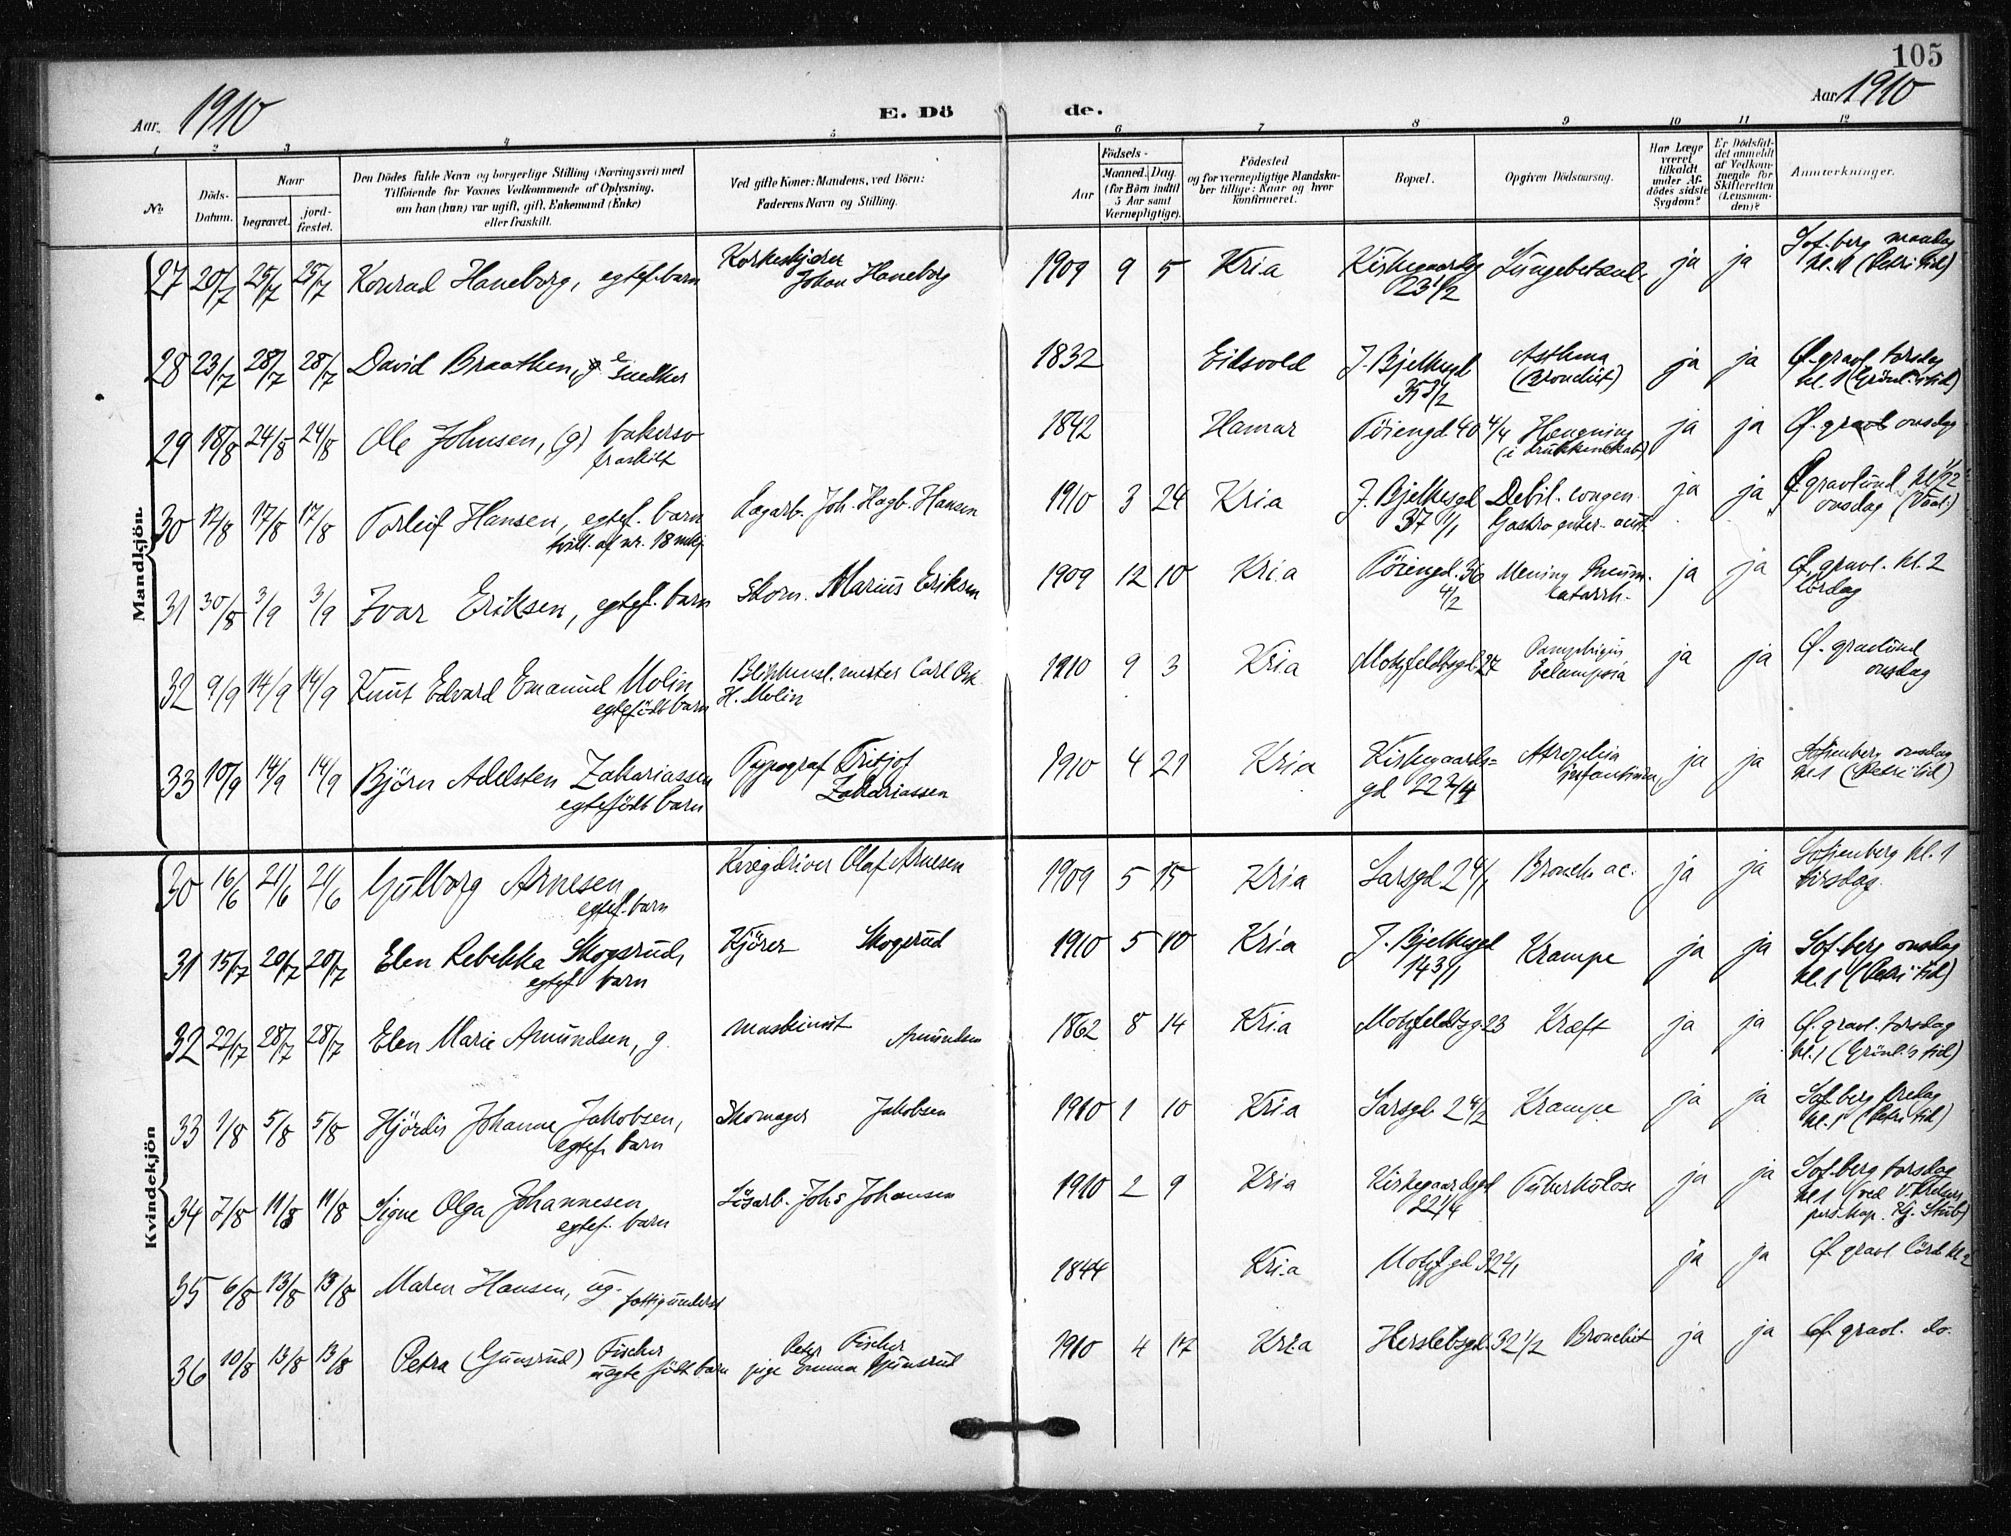 105
Aar. 1910
E. Döde.
Aar 1910
1 2 3 4 5 6 7 8 9 10 11 12
No.
Döds-Datum.
Naar
begravet.
jord-fæstet.
Den Dödes fulde Navn og borgerlige Stilling (Næringsvei) med
Tilföiende for Voxnes Vedkommende af Oplysning,
om han (hun) var ugift, gift, Enkemand (Enke)
eller fraskilt.
Ved gifte Koner: Mandens, ved Börn:
Faderens Navn og Stilling.
Födsels-
Aar
Maaned. Dag.
(for Börn indtil
5 Aar samt
Vernepligtige).
Födested
og for vernepligtige Mandska-
ber tillige: Naar og hvor
konfirmeret.
Bopæl.
Opgiven Dödsaarsag.
Har Læge
været
tilkaldt
under Af-
dödes sidste
Sygdom?
Er Dödsfal-
det anmeldt
af Vedkom-
mende for
Skifteretten
(Lensman-
den)?
Anmerkninger.
Mandkjön.
27 20/7 25/7 25/7 Konrad Haneborg, egtef. barn Korkeskjærer Johan Haneborg 1909 9 5 Kria Kirkegaardsg 23 1/2 Lungebetænd. ja ja Sof.berg mandag kl. 1 (Petri tid)
28 23/7 28/7 28/7 David Braathen, e snedker 1832 Eidsvold J. Bjelkesgd 35 Asthma (Bronchit) ja ja Ø. gravl. torsdag kl. 1 (Grönl.s tid)
29 18/8 24/8 24/8 Ole Johnsen, (g) bakersv fraskilt 1842 Hamar Töiengd 40 4/4 Hængning (i drukkenskab) ja ja Ø. gravl onsdag
30 12/8 17/8 17/8 Torleif Hansen, egtef. barn tvill. af nr. 18 mkj. Lagarb. Joh. Hagb. Hansen 1910 3 24 Kria J. Bjelkesgd 37 1/1 Debil. congen. Gastro enter. acut. ja ja Ø. gravlund kl 1/2 2 onsdag (Vaal.)
31 30/8 3/9 3/9 Ivar Eriksen, egtef. barn Skom. Marius Eriksen 1909 12 10 Kria Töiengd. 36 4/2 Mening Pneum. katarrh. ja ja Ø gravl. kl. 2 lördag
32 9/9 14/9 14/9 Knut Edvard Emanuel Molin egtefödt barn Blikkensl. mester Carl Osk. H. Molin 1910 9 3 Kria Motzfeldtsgd. 27 Pemphigus Eclampsia ja ja Ø. gravlund onsdag
33 10/9 14/9 14/9 Björn Adelsten Zakariassen egtefödt barn Typograf Fritjof Zakariassen 1910 4 21 Kria Kirkegaards=gd 22 2/4 Atrophia infantium ja ja Sofienberg onsdag kl 1 (Petri tid)
Kvindekjön
30 16/6 21/6 21/6 Gulborg Arnesen egtef. barn Kvægdriver Olaf Arnesen 1909 5 15 Kria Larsgd 2 4/1 Bronch. ac. ja ja Sofienberg kl. 1 tirsdag.
31 15/7 20/7 20/7 Elen Rebekka Skogsrud, egtef. barn Kjörer Skogsrud 1910 5 10 Kria J. Bjelkesgd 143/1 Krampe ja ja Sof.berg onsdag kl. 1 (Petri tid)
32 22/7 28/7 28/7 Elen Marie Amundsen, g. maskinist Amundsen 1862 8 14 Kria Motzfeldtsg. 23 Kræft ja ja Ø. gravl. torsdag kl. 1 (Grönl.'s tid)
33 1/8 5/8 5/8 Hjördis Johanne Jakobsen, egtef. barn Skomager Jakobsen 1910 1 10 Kria Larsgd 2 4/2 Krampe ja ja Sof.berg fredag kl. 1 (Petri tid)
34 7/8 11/8 11/8 Signe Olga Johannesen egtef. barn Lösarb. Johs Johansen 1910 2 9 Kria Kirkegaardsgd 22 1/4 Tuberkulose ja ja Sof.berg torsdag kl 1 (ved pers. kap. Kj. Stub)
35 6/8 13/8 13/8 Maren Hansen, ug. fattigunderst 1844 Kria Motzf gd 32 2/1 ja ja Ø. gravl. lörd kl 2
36 10/8 13/8 13/8 Petra (Gunsrud) Fischer uægte födt barn Peter Fischer pige Emma Gunsrud 1910 4 17 Kria Herslebsgd. 32 1/2 Bronchit ja ja Ø. gravl. do.